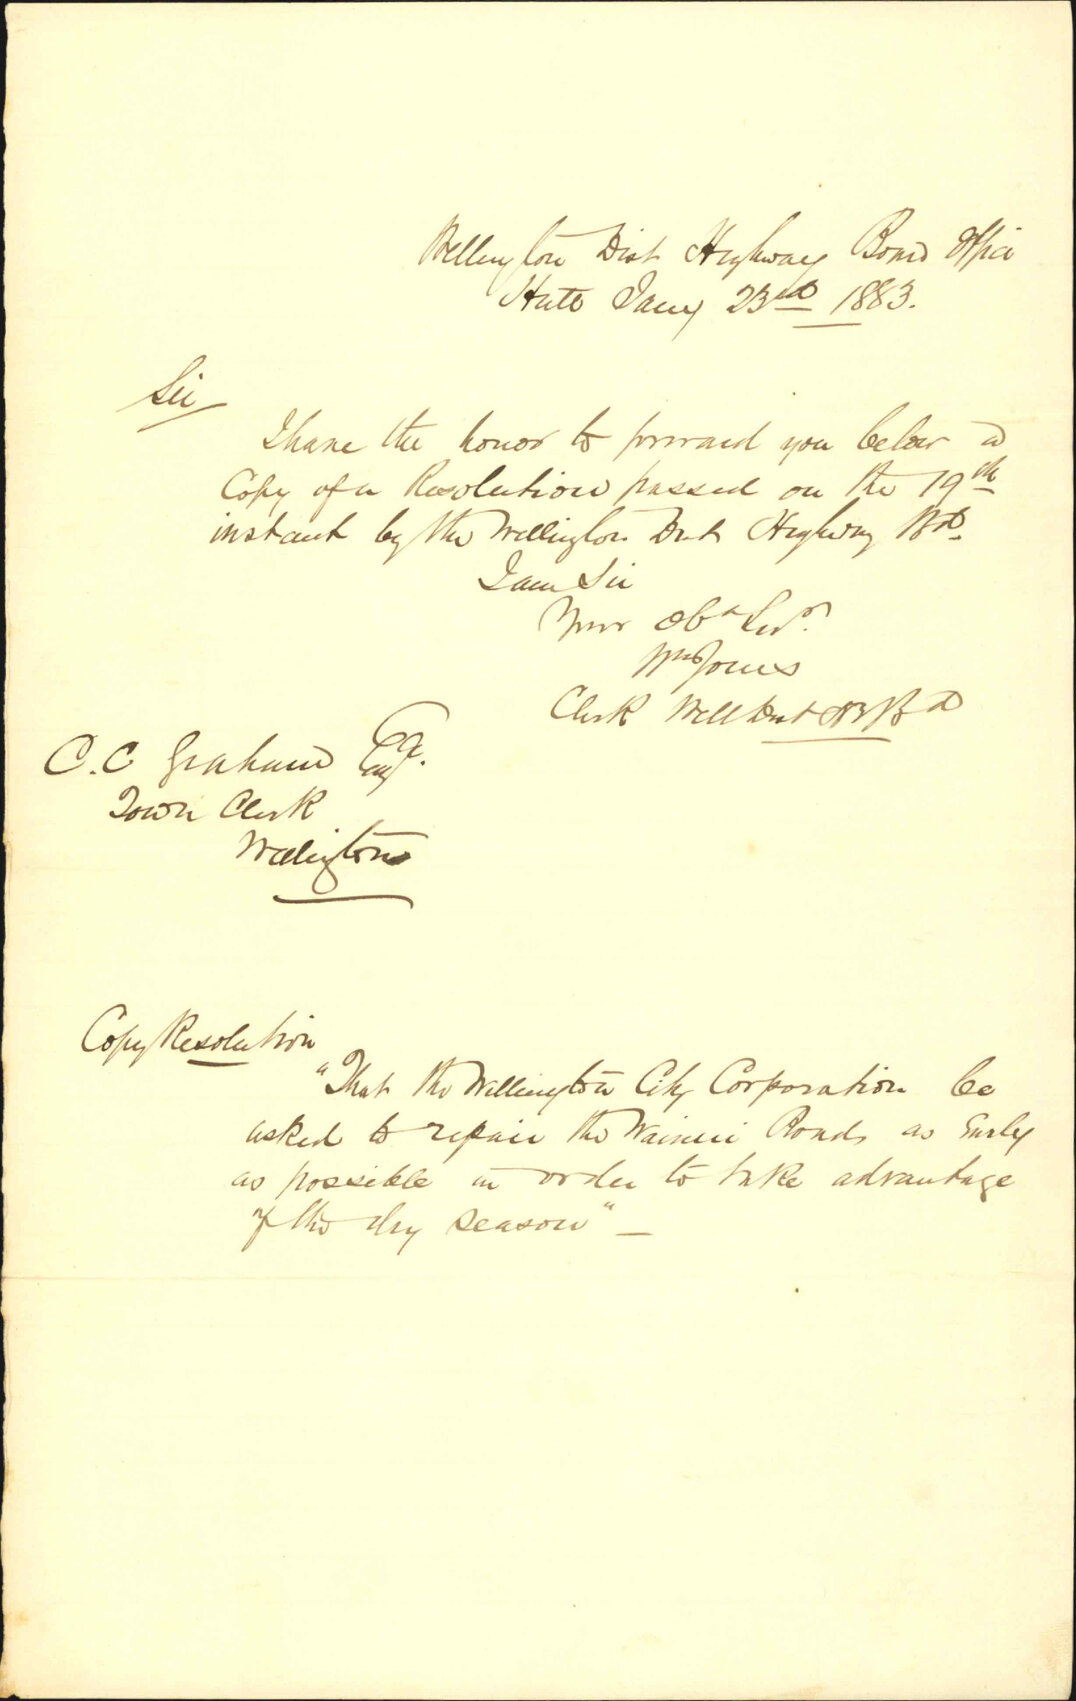 Wellington Dist Highway Board Office
Hutt Jany 23rd 1883.
Sir
I have the honor to forward you below a
Copy of a Resolution passed on the 19th
instant by the Wellington Dist Highway Bd.
I am Sir
Your Obt Servt.
Wm Jones
Clerk Well Dist H Bd
C. C Graham Esq.
Town Clerk
Wellington
Copy Resolution
"That the Wellington City Corporation be
asked to repair the Wainui Roads as Early
as possible in order to take advantage
of the dry season" —